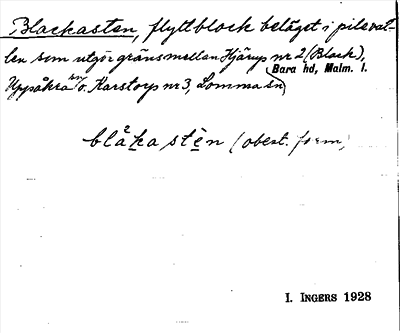 Blackasten, flyttblock beläget i pileval-
len som utgör gräns mellan Hjärup nr 2 (Black),
Bara hd, Malm. l.
Uppåkra sn o. Karstorp nr 3, Lomma sn
blåkastèn (obest. form)
I. INGERS 1928